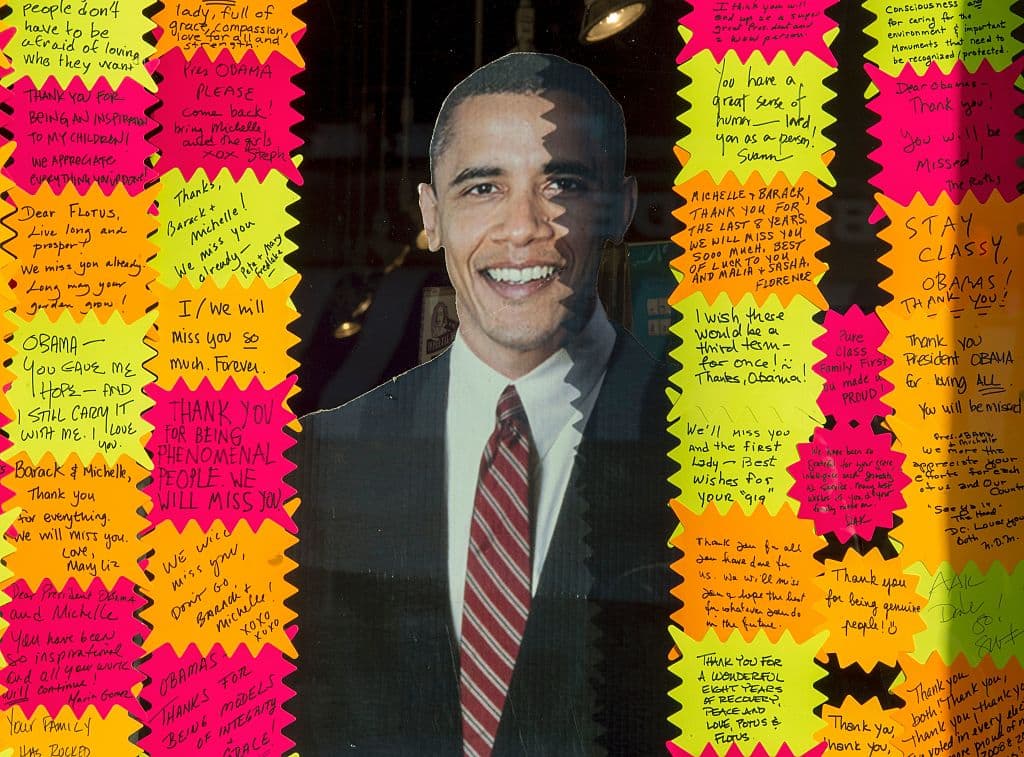 people don't
have to be
afraid of loving
who they want
THANK YOU FOR
BEING AN INSPIRATION
TO MY CHILDREN!
WE APPRECIATE
EVERYTHING YOU'VE DONE!
Dear FLOTUS,
Live long and
prosper!
We miss you already.
Long may your
garden grow!
OBAMA —
YOU GAVE ME
HOPE — AND
I STILL CARRY IT
WITH ME. I LOVE
YOU.
Barack & Michelle,
Thank you
for everything.
We will miss you.
Love,
Mary Liz
Dear President Obama
and Michelle
You have been
so inspirational
and all your work
will continue!
YOUR FAMILY
HAS ROCKED
lady, full of
grace, compassion,
love for all and
strength.
Pres OBAMA
PLEASE
come back!
bring Michelle,
and the girls
xox Steph
Thanks,
Barack +
Michelle!
We miss you
already—
I/we will
miss you so
much. Forever.
THANK YOU
FOR BEING
PHENOMENAL
PEOPLE. WE
WILL MISS YOU
WE WILL
MISS YOU,
DON'T GO,
BARACK +
MICHELLE!
XOXO
XOXO
OBAMAS
THANKS FOR
BEING MODELS
OF INTEGRITY
+ GRACE!
I think you will
end up as a super
great President and
a wow person.
You have a
great sense of
humor — loved
you as a person!
MICHELLE + BARACK,
THANK YOU FOR
THE LAST 8 YEARS.
WE WILL MISS YOU
SOOO MUCH. BEST
OF LUCK TO YOU
AND MALIA + SASHA.
FLORENCE
I wish there
would be a
third term—
for once!
Thanks, Obama!
We'll miss you
and the first
Lady — Best
Wishes for
your "gig"
Thank you for all
you have done for
us. We will miss
you & hope the best
for whatever you do
in the future.
THANK YOU FOR
A WONDERFUL
EIGHT YEARS
OF RECOVERY,
PEACE AND
LOVE, POTUS &
FLOTUS.
Pure
Class
Family First
You made us
PROUD!
Thank you
for being genuine
people!
Thank you,
thank you,
Consciousness and
for caring for the
environment & important
Monuments that need to
be recognized/protected.
Dear Obamas-
Thank you!
You will be
Missed!
The Roths
STAY
CLASSY,
OBAMAS!
THANK YOU!
Thank you
President OBAMA
for loving ALL.
You will be missed
Pres. OBAMA
& Michelle
We more than
appreciate your
efforts for each
of us and Our
Country
Thank you
both! Thank you,
Thank you, Thank you!